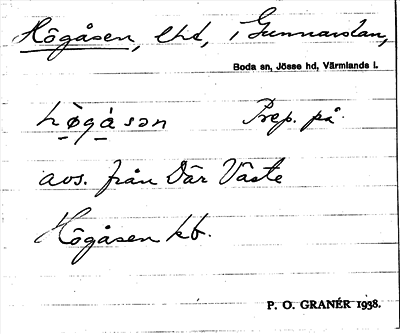 Högåsen, lht, i Gunnarstan,
Boda sn, Jösse hd, Värmlands l.
hø̀gåsən Prep. på.
avs. från Där Väste
Högåsen kb.
P. O. GRANÉR 1938.